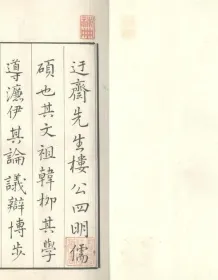 迂齋先生樓公四明儒
碩也其文祖韓柳其學
導濂伊其論議辯博步